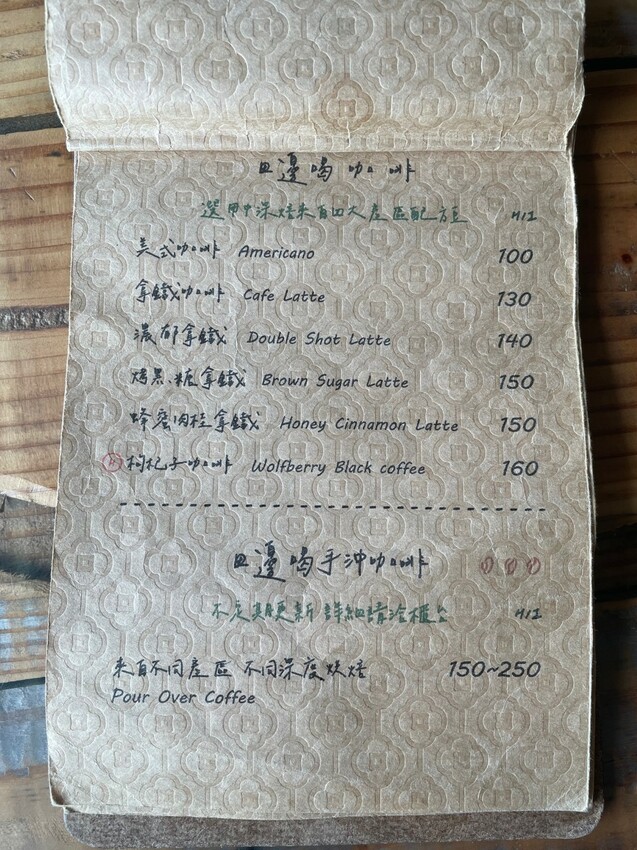 邊喝咖啡
選用中深焙來自四大產區配方豆 H/I
美式咖啡 Americano 100
拿鐵咖啡 Cafe Latte 130
濃郁拿鐵 Double Shot Latte 140
烤黑糖拿鐵 Brown Sugar Latte 150
蜂蜜肉桂拿鐵 Honey Cinnamon Latte 150
枸杞子咖啡 Wolfberry Black coffee 160
邊喝手沖咖啡
不定期更新 詳細請洽櫃台 H/I
來自不同產區 不同深度烘焙 150~250
Pour Over Coffee